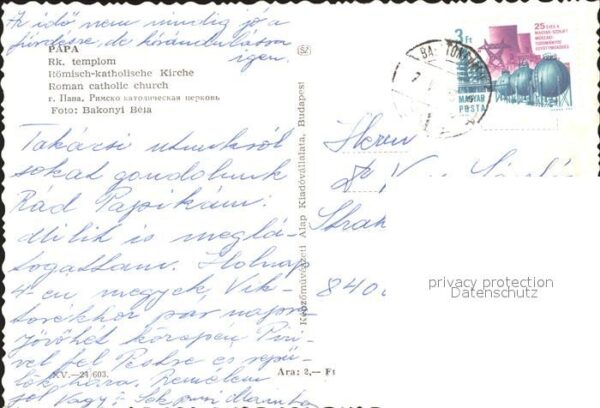 Az idő nem mindig jó a
fürdésre, de kirándulásra
igen.
PÁPA
Rk. templom
Römisch-katholische Kirche
Roman catholic church
г. Папа. Римско католическая церковь
Foto: Bakonyi Béla
Takácsi utunkról
sokat gondolunk
Rád Papikám!
Milik is meglá-
togattam. Holnap
4-en megyek Vik-
torékhoz pár napra
jövő hét közepén Piri-
vel fel Pestre és repü-
lök haza. Remélem
jól vagy!
XV.—24 603.
Ára: 2,— Ft
Képzőművészeti Alap Kiadóvállalata, Budapest
3 Ft
25 ÉVES A
MAGYAR-SZOVJET
MŰSZAKI-
TUDOMÁNYOS
EGYÜTTMŰKÖDÉS
MAGYAR
POSTA
Herrn
Dr.
840
privacy protection
Datenschutz